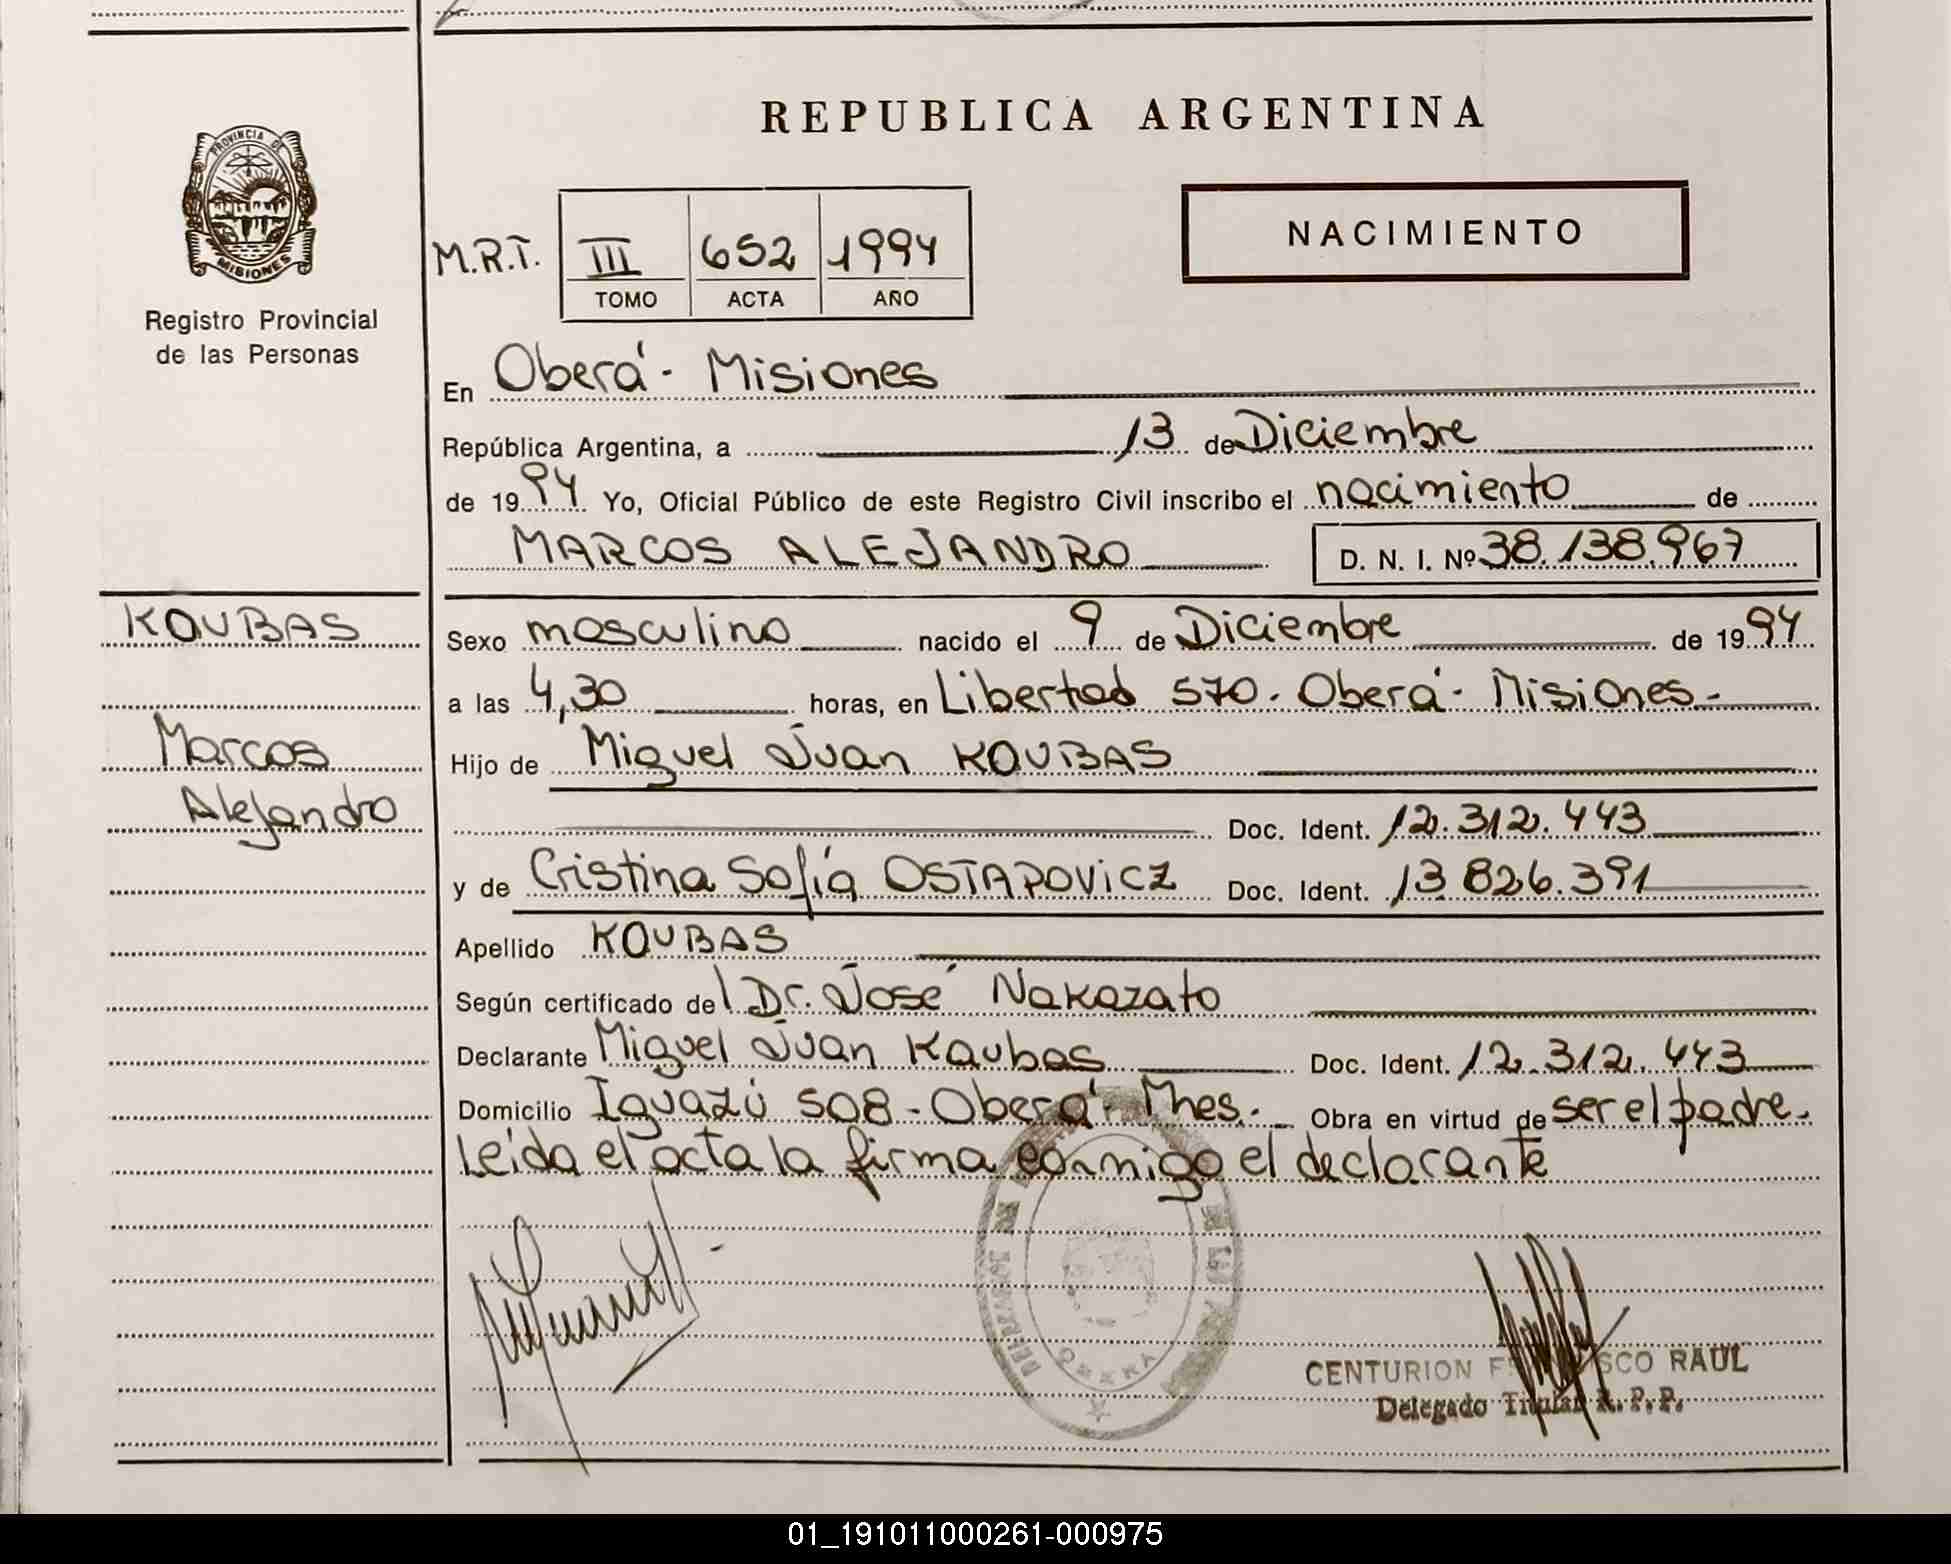 REPUBLICA ARGENTINA
PROVINCIA DE
MISIONES
Registro Provincial
de las Personas
M.R.T. III 652 1994
TOMO ACTA AÑO
NACIMIENTO
En Oberá - Misiones
República Argentina, a 13 de Diciembre
de 1994 Yo, Oficial Público de este Registro Civil inscribo el nacimiento de
MARCOS ALEJANDRO D. N. I. Nº 38.138.967
KOUBAS
Marcos
Alejandro
Sexo masculino nacido el 9 de Diciembre de 1994
a las 4,30 horas, en Libertad 570. Oberá - Misiones.-
Hijo de Miguel Juan KOUBAS
Doc. Ident. 12.312.443
y de Cristina Sofía OSTAPOVICZ Doc. Ident. 13 826.391
Apellido KOUBAS
Según certificado del Dr. José Nakazato
Declarante Miguel Juan Koubas Doc. Ident. 12.312.443
Domicilio Iguazú 508 - Oberá - Mnes. Obra en virtud de ser el padre.
Leida el acta la firma conmigo el declarante
OBERA
CENTURION RAUL
Delegado Titular R. P. P.
01_191011000261-000975